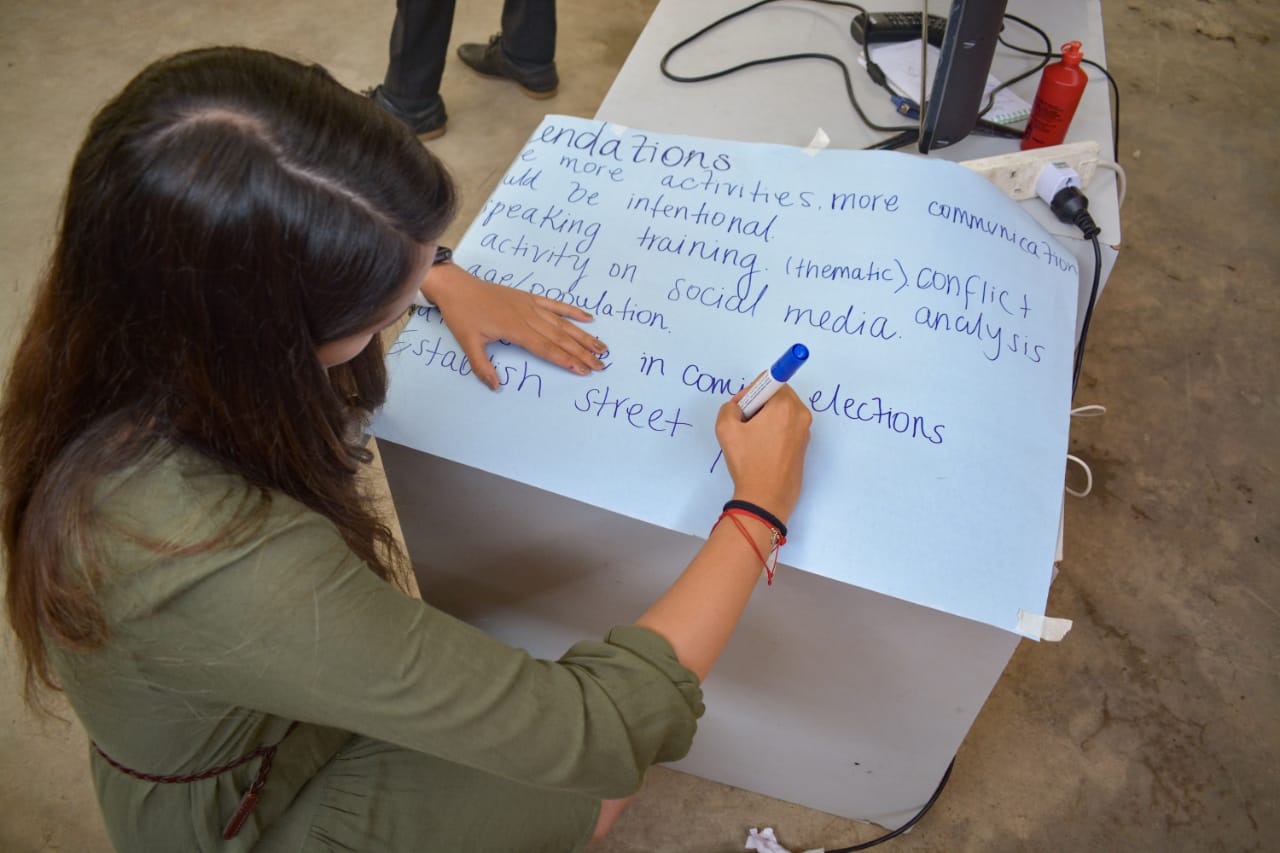 endations
e more activities, more communication
uld be intentional.
peaking training. (thematic). conflict
activity on social media. analysis
age/population.
in comi elections
Establish street